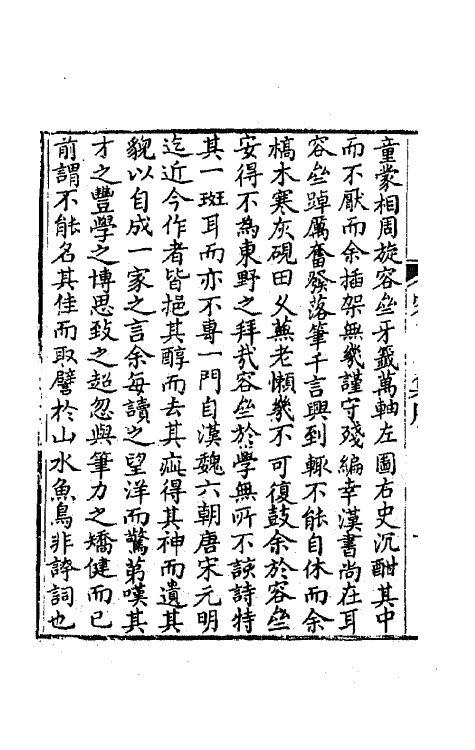 童蒙相周旋容坐牙籤萬軸左圖右史沉酣其中
而不厭而余插架無幾謹守殘編幸漢書尚在耳
容坐踔厲奮發落筆千言興到輒不能自休而余
槁木寒灰硯田久蕪老懶幾不可復鼓余於容坐
安得不為東野之拜哉容坐於學無所不該詩特
其一斑耳而亦不專一門自漢魏六朝唐宋元明
迄近今作者皆挹其醇而去其疵得其神而遺其
貌以自成一家之言余每讀之望洋而驚第嘆其
才之豐學之博思致之超忽與筆力之矯健而已
前謂不能名其佳而取譬於山水魚鳥非誇詞也